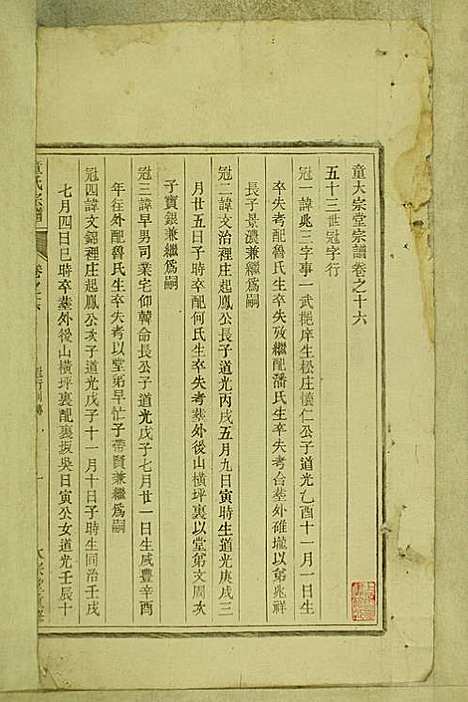 童大宗堂宗譜卷之十六
五十三世冠字行
冠一諱兆三字事一武庠生松庄懷仁公子道光乙酉十一月一日生
卒失考配魯氏生卒失攷繼配潘氏生卒失考合塟外碓壠以第兆祥
長子景濃兼繼爲嗣
冠二諱文治裡庄起鳳公長子道光丙戌五月九日寅時生道光庚戌三
月廿五日子時卒配何氏生卒失考塟外後山橫坪裏以堂第文周次
子寶銀兼繼爲嗣
冠三諱早男司業宅仰韓命長公子道光戊子七月廿一日生咸豐辛酉
年在外配魯氏生卒失考以堂第早忙子帶賢兼繼爲嗣
冠四諱文錦裡庄起鳳公次子道光戊子十一月十日子時生同治壬戌
七月四日巳時卒塟外後山橫坪裏配裏坂吳日寅公女道光壬辰十
童氏宗譜
卷之十六